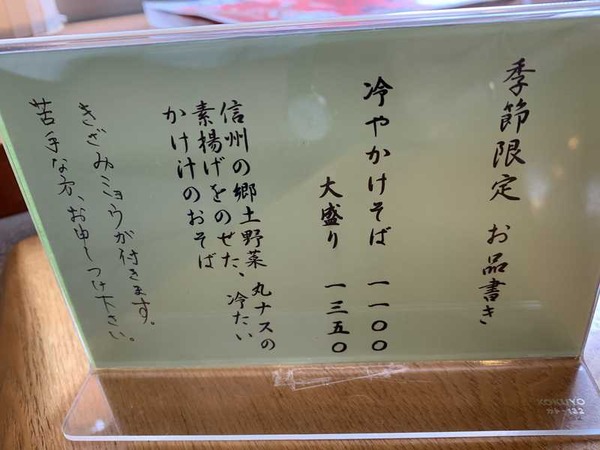 季節限定 お品書き
冷やかけそば 一一〇〇
大盛り 一三五〇
信州の郷土野菜 丸ナスの
素揚げをのせた、冷たい
かけ汁のおそば
きざみミョウガ付きます。
苦手な方、お申しつけ下さい。
KOKUYO